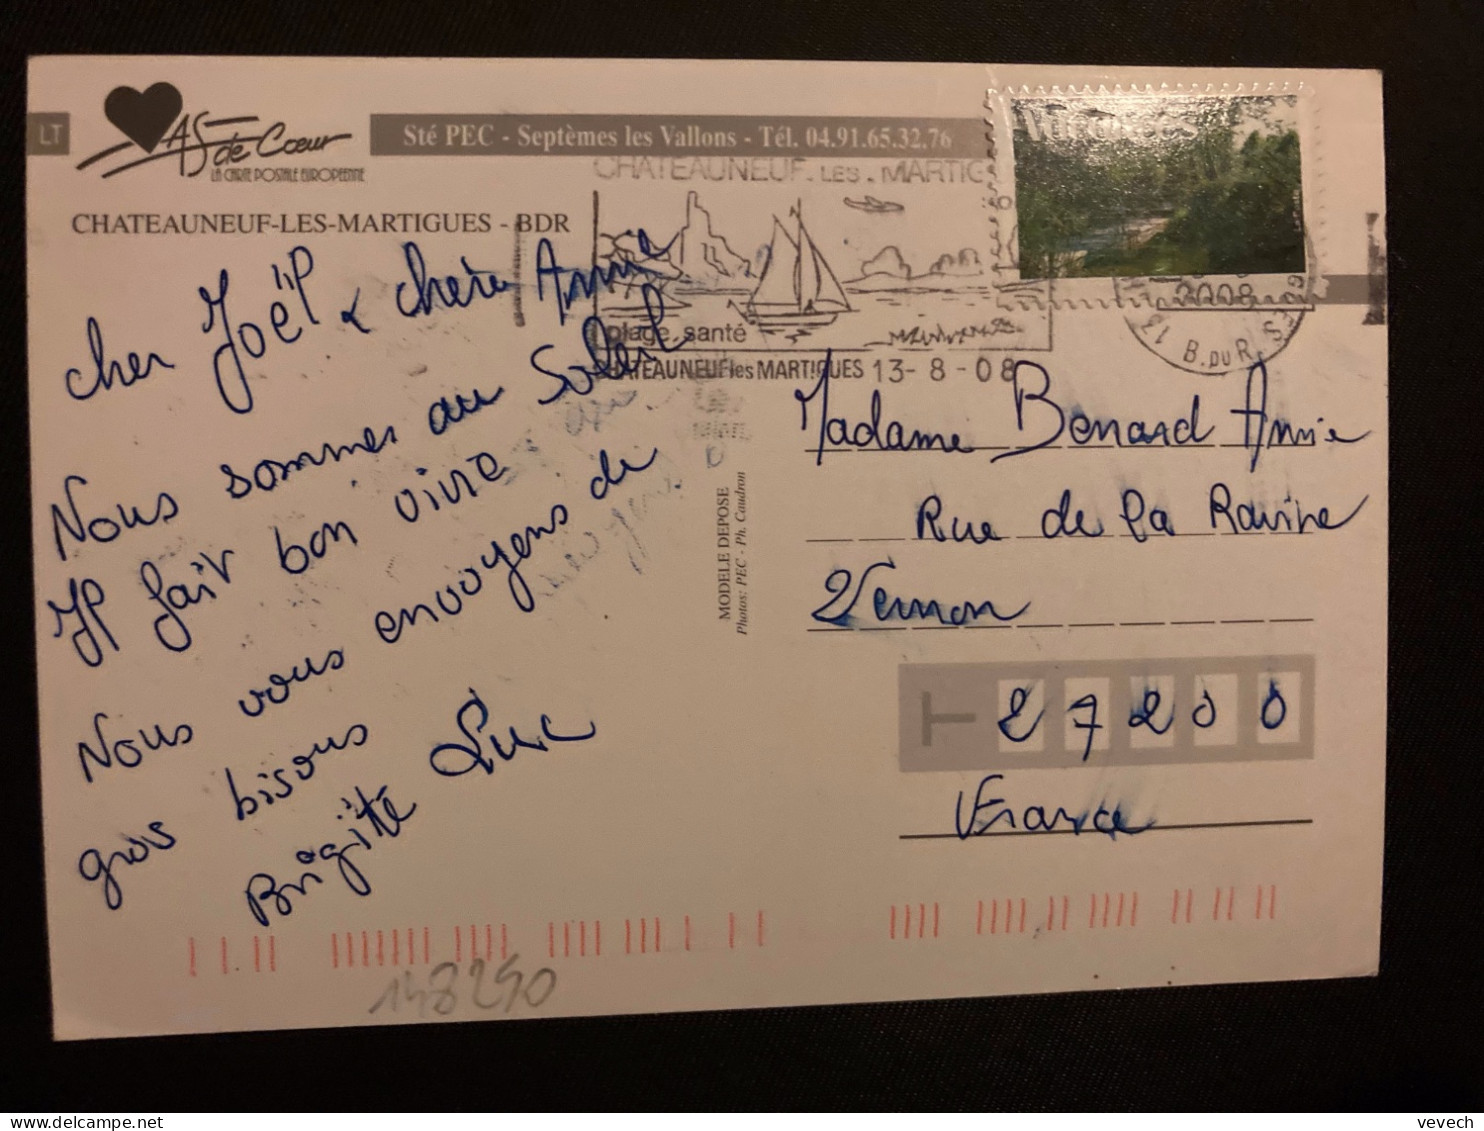 LT
AS de Cœur
LA CARTE POSTALE EUROPEENNE
Sté PEC - Septèmes les Vallons - Tél. 04.91.65.32.76
CHATEAUNEUF-LES-MARTIGUES - BDR
CHATEAUNEUF.LES.MARTIG
plage santé
CHATEAUNEUF les MARTIGUES 13-8-08
2008
13 B. DU R.
cher Joël & chère Annie
Nous sommes au Soleil
Il fait bon vivre
Nous vous envoyons de
gros bisous
Brigitte Luc
MODELE DEPOSE
Photos: PEC - Ph. Caudron
Madame Benard Annie
Rue de la Ravine
Vernon
T 27200
France
148290
vevech